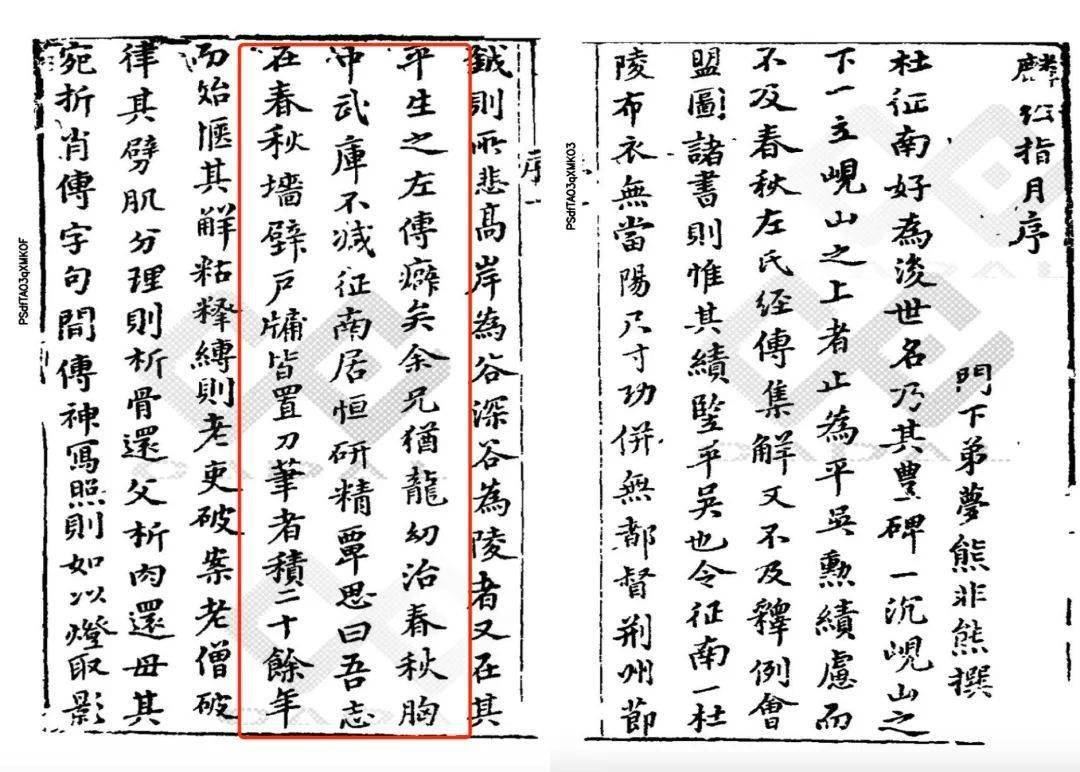 麟經指月序
門下弟夢熊非熊撰
杜征南好為後世名乃其豐碑一沉峴山之
下一立峴山之上者止為平吳勳績慮而
不及春秋左氏經傳集解又不及釋例會
盟圖諸書則惟其績堅平吳也令征南一杜
陵布衣無當陽尺寸功併無都督荊州節
鉞則所悲高岸為谷深谷為陵者又在其
序
平生之左傳癖矣余兄猶龍幼治春秋胸
中武庫不減征南居恒研精覃思曰吾志
在春秋墻壁戶牖皆置刀筆者積二十餘年
而始愜其解粘釋縛則老吏破案老僧破
律其劈肌分理則析骨還父析肉還母其
宛折肖傳字句間傳神寫照則如以燈取影
PSdfTA03qXMK03
PSdfTA03qXMK0F